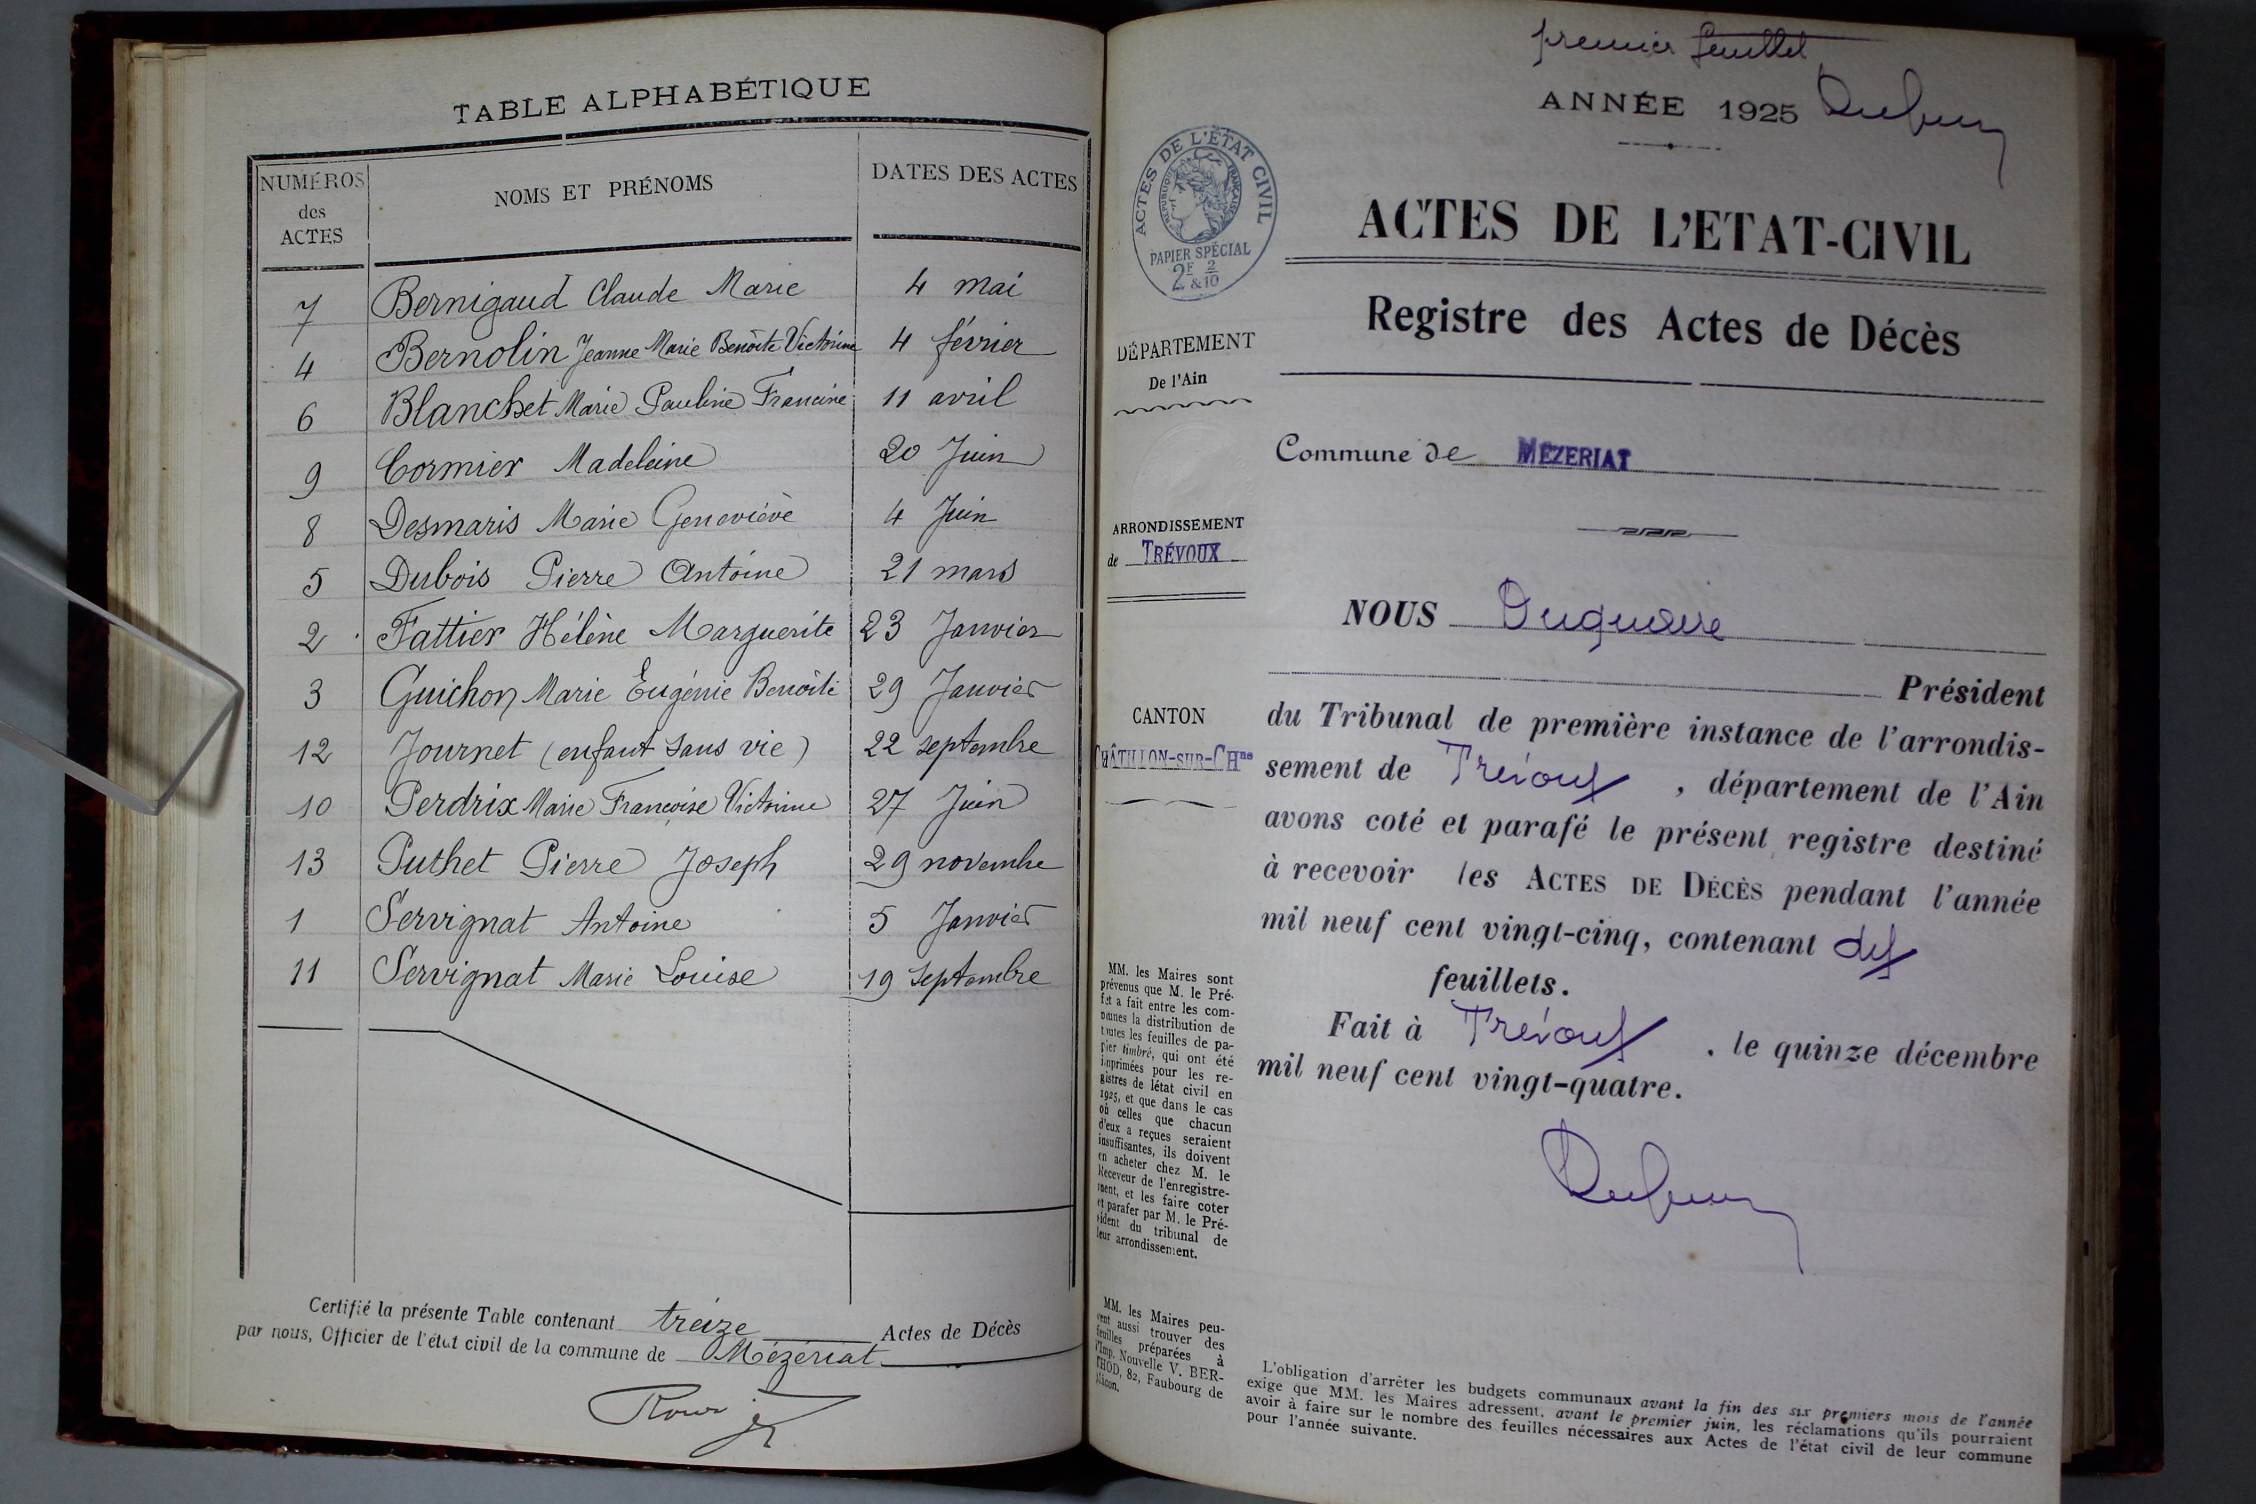 TABLE ALPHABÉTIQUE
NUMÉROS des ACTES | NOMS ET PRÉNOMS | DATES DES ACTES
7 Bernigaud Claude Marie 4 mai
4 Bernolin Jeanne Marie Benoîte Victorine 4 février
6 Blanchet Marie Pauline Francine 11 avril
9 Cormier Madeleine 20 Juin
8 Desmaris Marie Geneviève 4 Juin
5 Dubois Pierre Antoine 21 mars
2 Fattier Hélène Marguerite 23 Janvier
3 Guichon Marie Eugénie Benoîte 29 Janvier
12 Journet (enfant sans vie) 22 septembre
10 Perdrix Marie Françoise Victorine 27 Juin
13 Puthet Pierre Joseph 29 novembre
1 Servignat Antoine 5 Janvier
11 Servignat Marie Louise 19 septembre
Certifié la présente Table contenant treize Actes de Décès
par nous, Officier de l'état civil de la commune de Mézériat
premier feuillet
ANNÉE 1925
ACTES DE L'ÉTAT CIVIL
RÉPUBLIQUE FRANÇAISE
PAPIER SPÉCIAL
2F & 2/10
ACTES DE L'ETAT-CIVIL
Registre des Actes de Décès
DÉPARTEMENT
De l'Ain
Commune de MÉZERIAT
ARRONDISSEMENT
de TRÉVOUX
CANTON
CHÂTILLON-SUR-CHne
NOUS
Président
du Tribunal de première instance de l'arrondis-
sement de Trévoux, département de l'Ain
avons coté et parafé le présent registre destiné
à recevoir les ACTES DE DÉCÈS pendant l'année
mil neuf cent vingt-cinq, contenant dix
feuillets.
Fait à Trévoux, le quinze décembre
mil neuf cent vingt-quatre.
MM. les Maires sont
prévenus que M. le Pré-
fet a fait entre les com-
munes la distribution de
toutes les feuilles de pa-
pier timbré, qui ont été
imprimées pour les re-
gistres de létat civil en
1925, et que dans le cas
où celles que chacun
d'eux a reçues seraient
insuffisantes, ils doivent
en acheter chez M. le
Receveur de l'enregistre-
ment, et les faire coter
et parafer par M. le Pré-
sident du tribunal de
leur arrondissement.
MM. les Maires peu-
vent aussi trouver des
feuilles préparées à
l'Imp. Nouvelle V. BER-
THOD, 82, Faubourg de
Mâcon.
L'obligation d'arrêter les budgets communaux avant la fin des six premiers mois de l'année
exige que MM. les Maires adressent, avant le premier juin, les réclamations qu'ils pourraient
avoir à faire sur le nombre des feuilles nécessaires aux Actes de l'état civil de leur commune
pour l'année suivante.